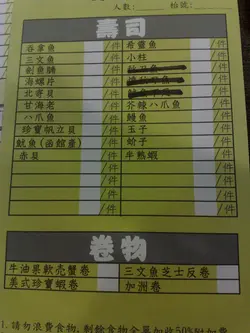 人數: 枱號:
壽司
吞拿魚 /件 希靈魚 /件
三文魚 /件 小柱 /件
劍魚腩 /件 /件
海螺片 /件 /件
北寄貝 /件 /件
甘海老 /件 芥辣八爪魚 /件
八爪魚 /件 鰻魚 /件
珍寶帆立貝 /件 玉子 /件
魷魚(函館產) /件 餃子 /件
赤貝 /件 牛熟蝦 /件
卷物
牛油果軟壳蟹卷 三文魚芝士反卷
美式珍寶蝦卷 加洲卷
1.請勿浪費食物,剩餘食物全單加收50%附加費